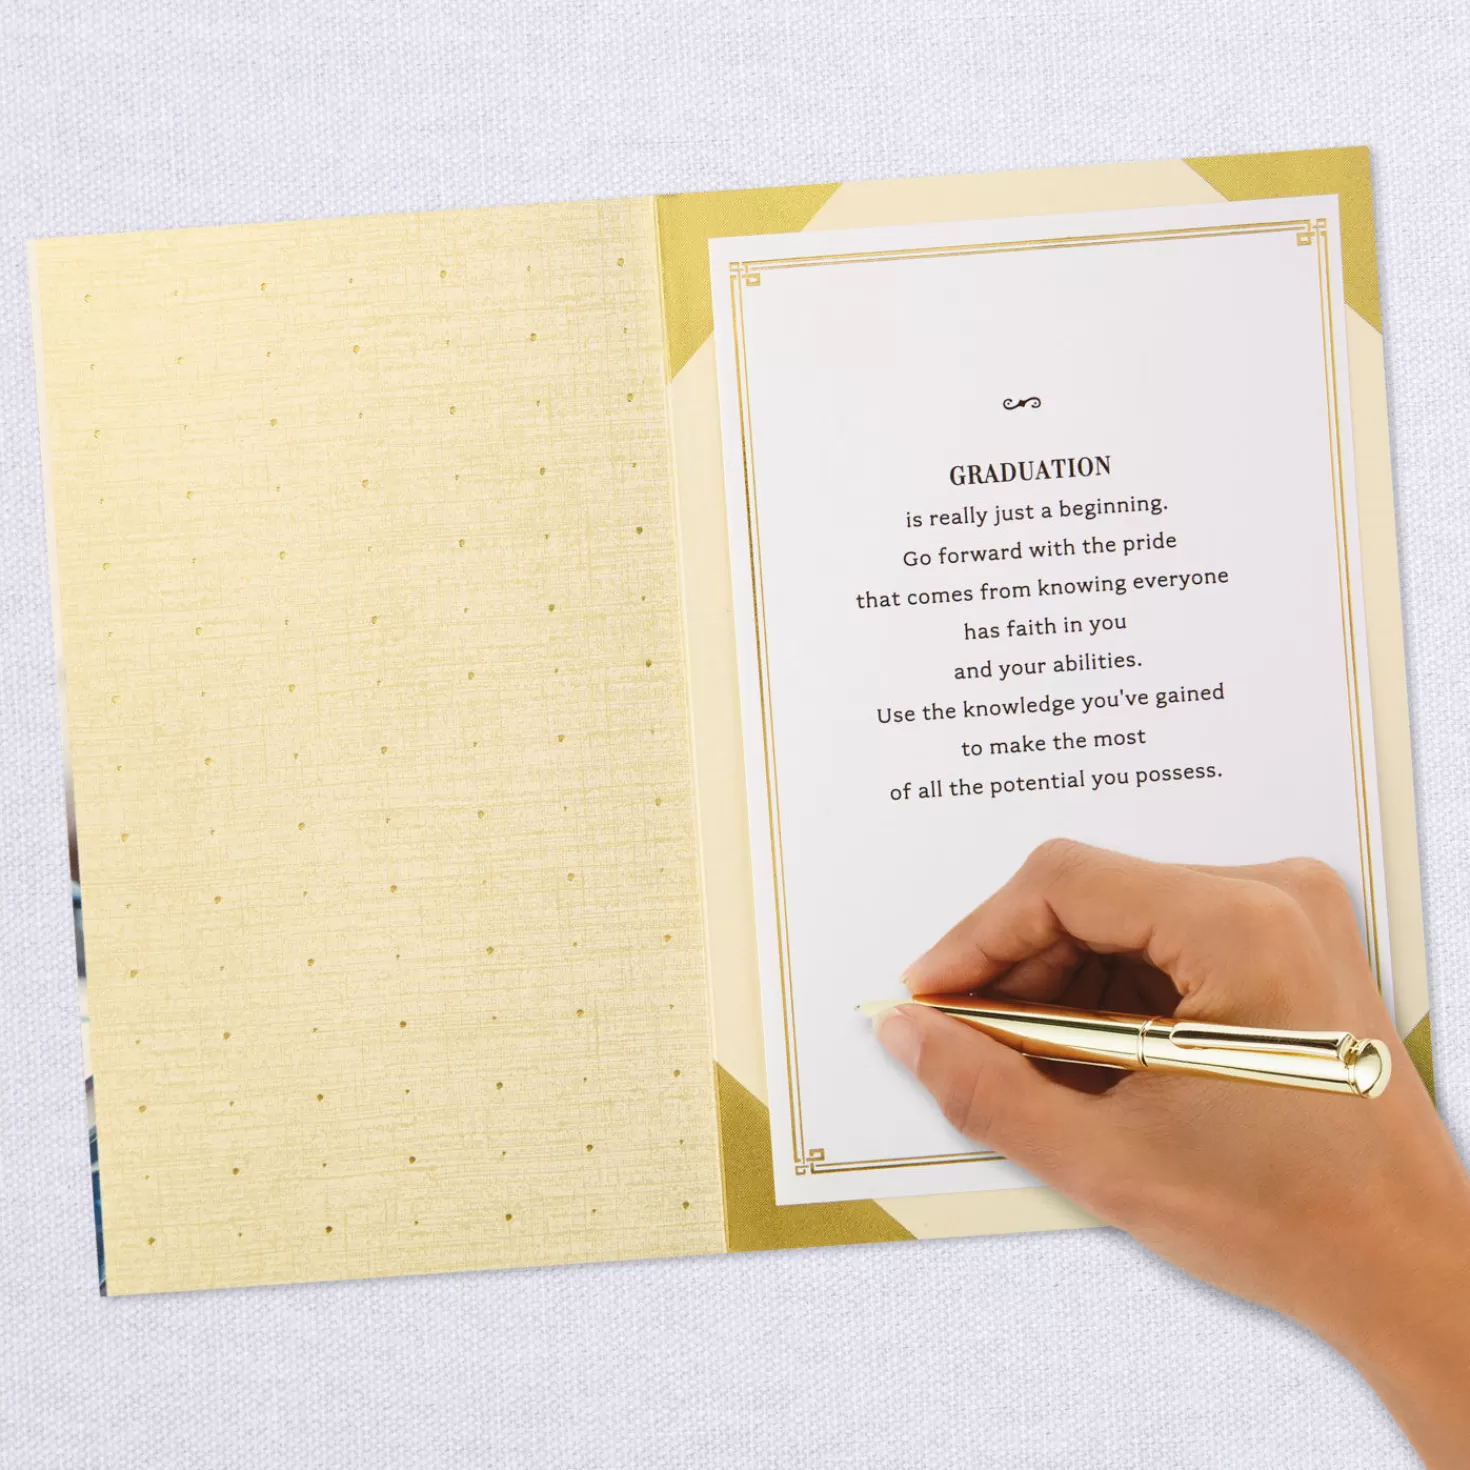 GRADUATION
is really just a beginning.
Go forward with the pride
that comes from knowing everyone
has faith in you
and your abilities.
Use the knowledge you've gained
to make the most
of all the potential you possess.